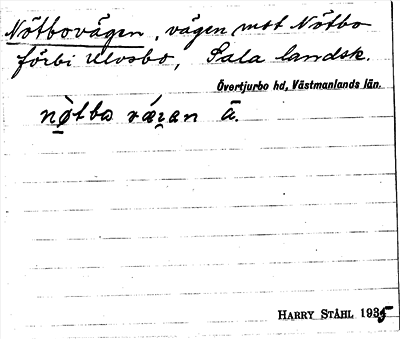 Nötbovägen, vägen mot Nötbo
förbi Ulvsbo, Sala landsk.
Övertjurbo hd, Västmanlands län.
nø̀tbo vǽgan ā.
HARRY STÅHL 1935